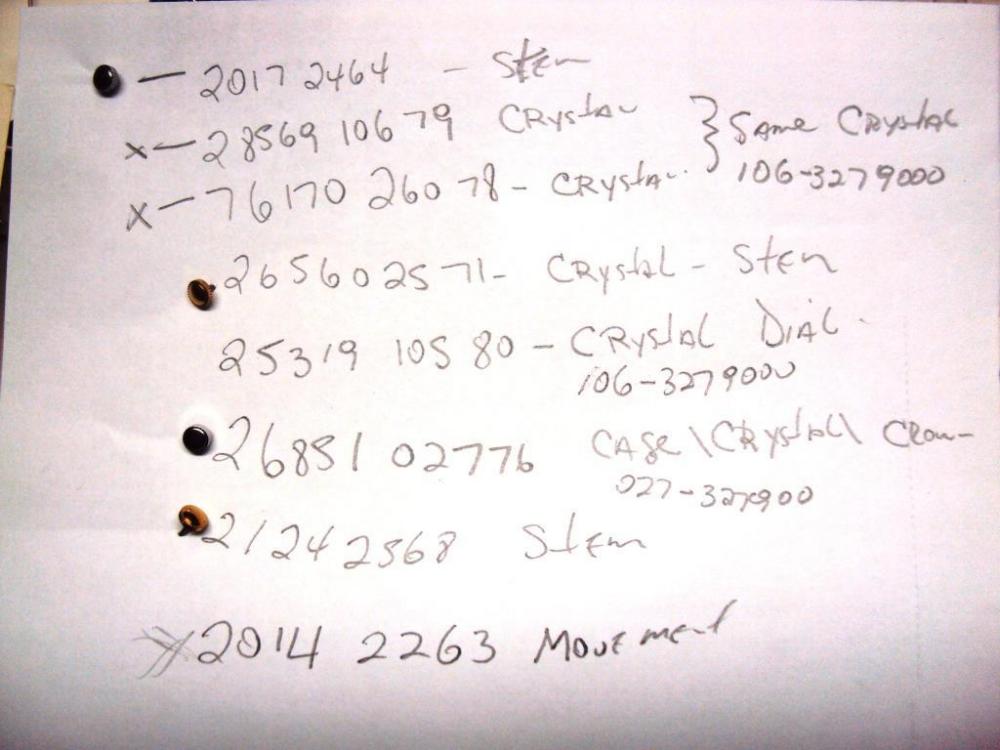 — 2017 2464 - Stem
x — 28569 106 79 Crystal } Same Crystal
x — 76170 260 78 - Crystal 106-3279000
265602571- Crystal - Stem
25319 105 80 - Crystal Dial
106-3279000
26851 02776 Case \ Crystal \ Crown
027-327900
21242568 Stem
2014 2263 Movement